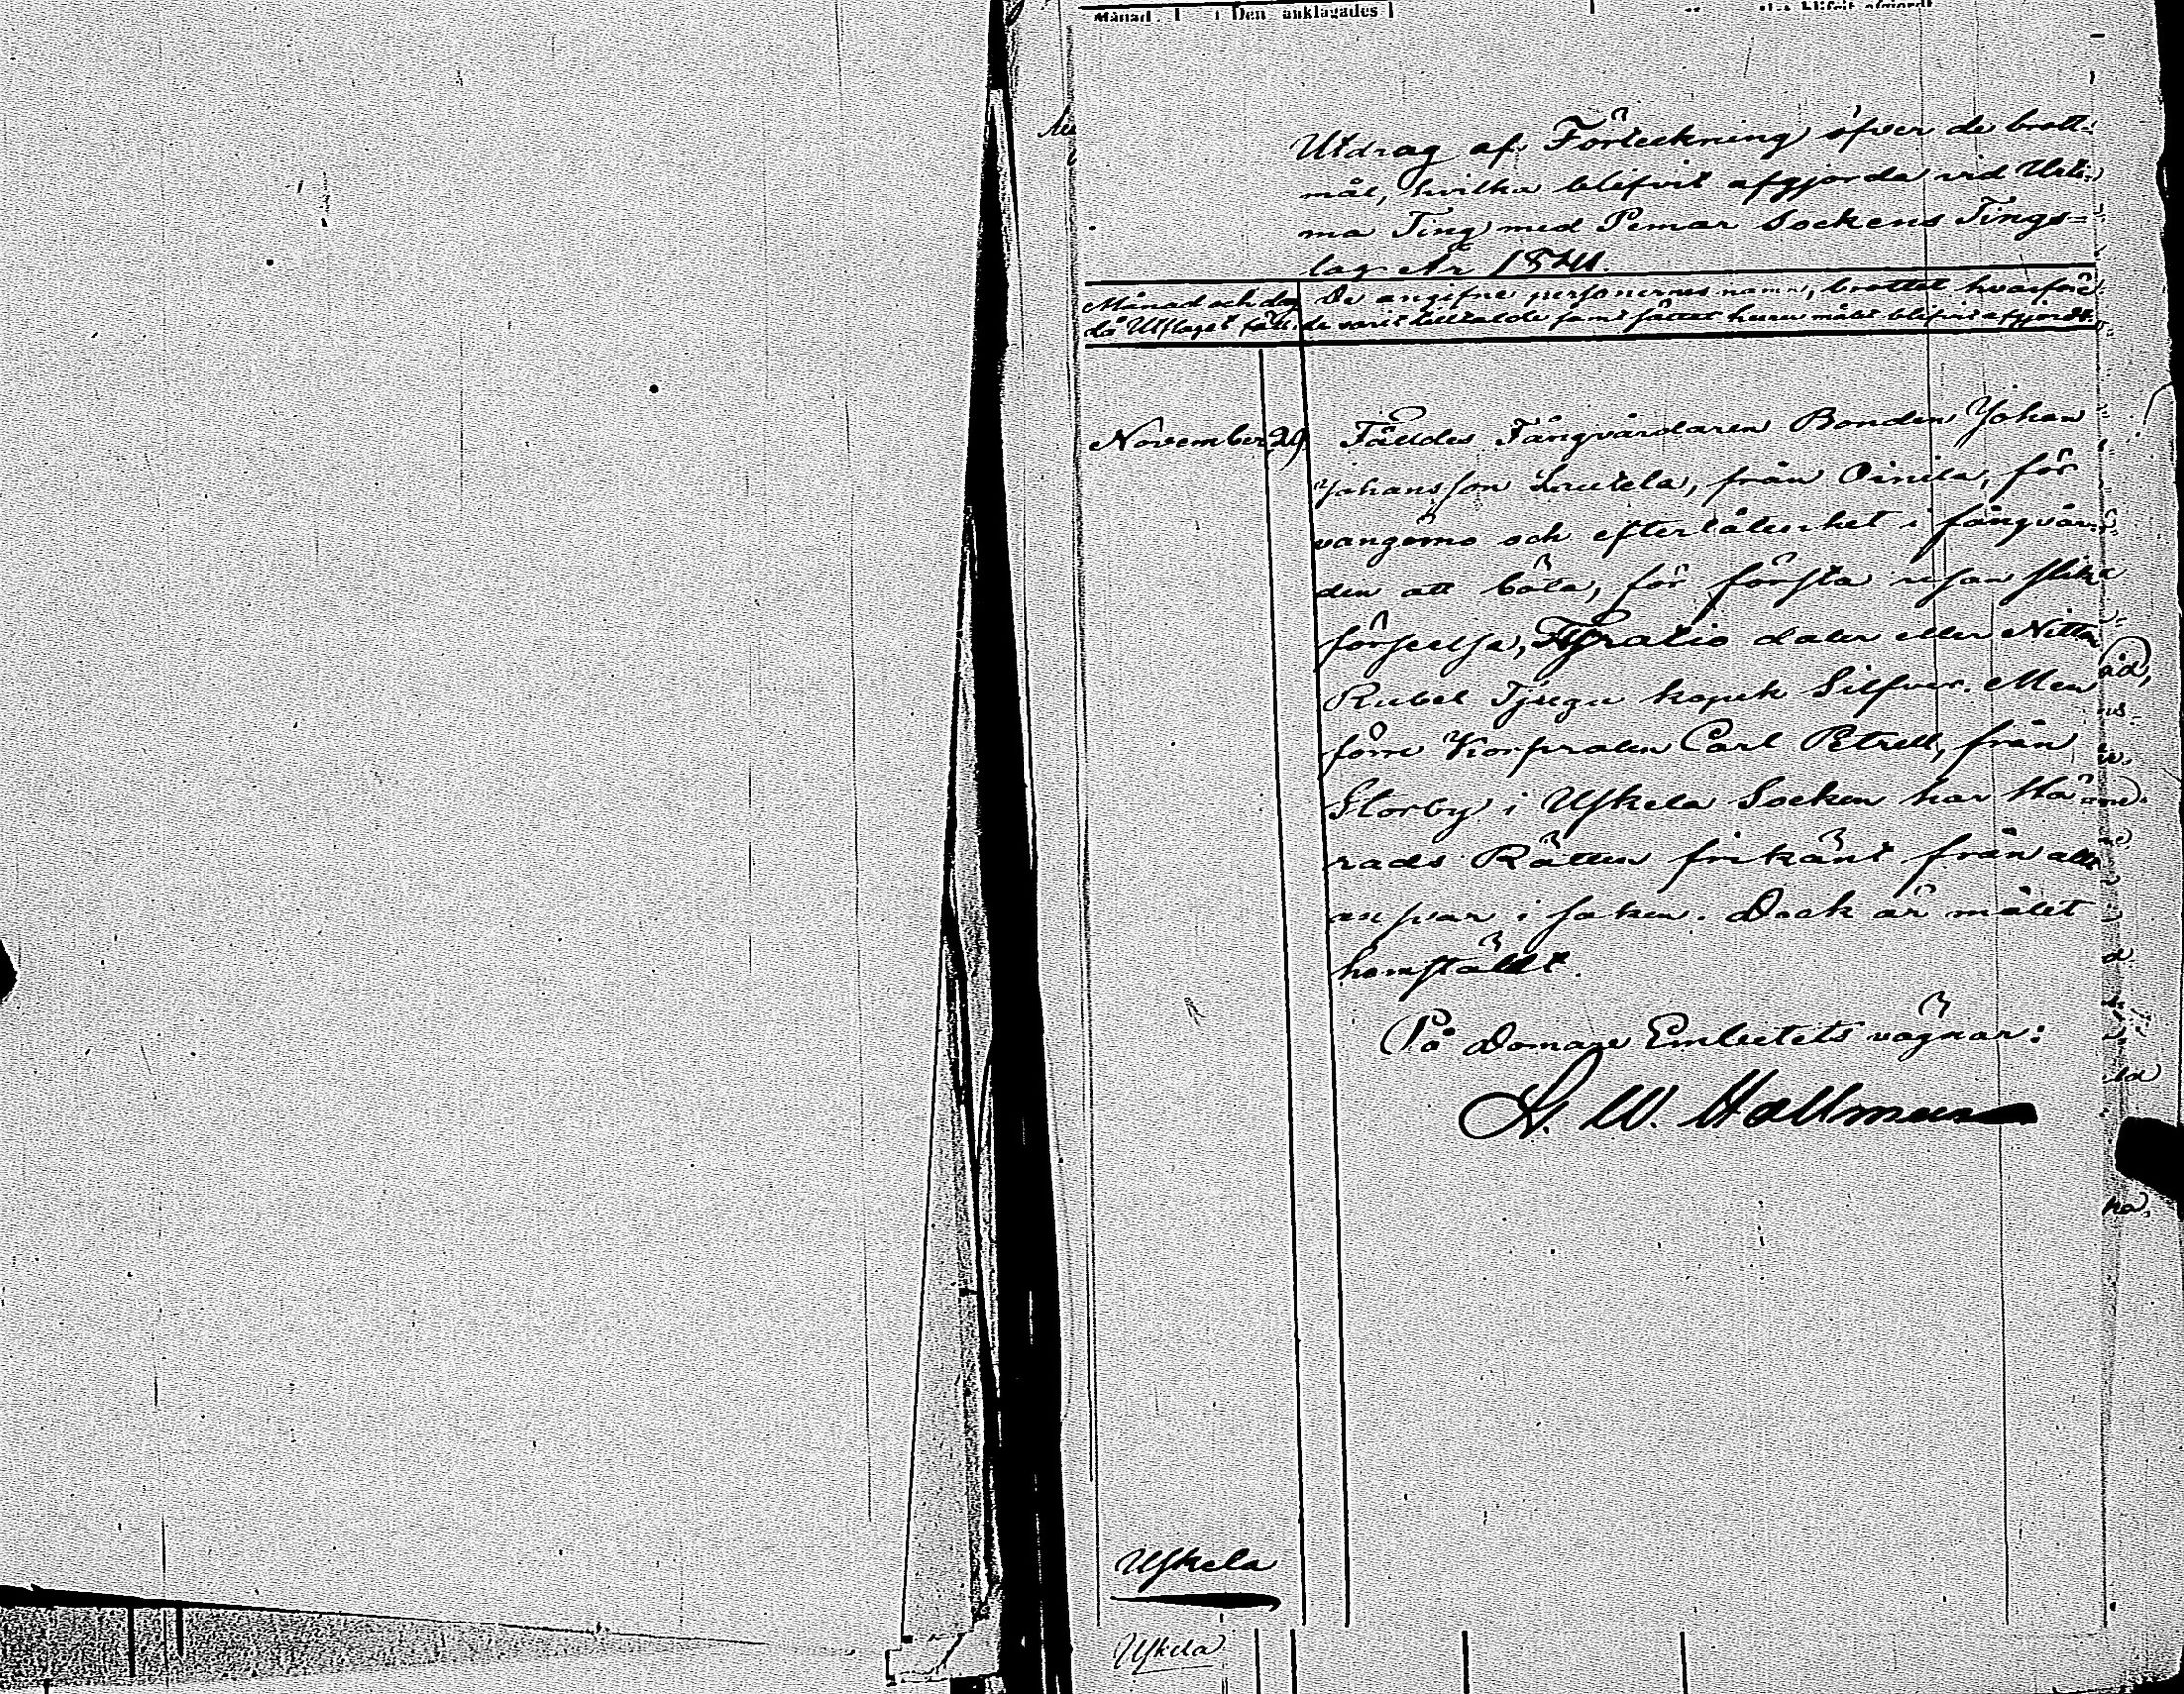 Månad Den anklagades
Utdrag af Förteckning öfver de brott-
mål, hvilka blifvit afgjorda vid Urti-
ma Ting med Pemar Sockens Tings-
lag År 1841.
Månad och dag
då Utslaget fäll.
De angifne personernes namn, brottet hvarföre
de varit tilltalde samt sättet huru målet blifvit afgjordt.
November 29.
Fälldes Fångvårdaren Bonden Johan
Johansson Lautela, från Oinila, för
vangömo och efterlåtenhet i fångvår-
den att böta, för första resan slik
förseelse, Fyratio daler eller Nitton
Rubel Tjugu kopek Silfver. Men
förre Korpralen Carl Petrell, från
Storby i Uskela Socken har Hä-
rads Rätten frikänt från allt
ansvar i saken. Dock är målet
hemstäldt.
På Domare Embetets vägnar:
A. W. Hallman
Uskela
Uskela